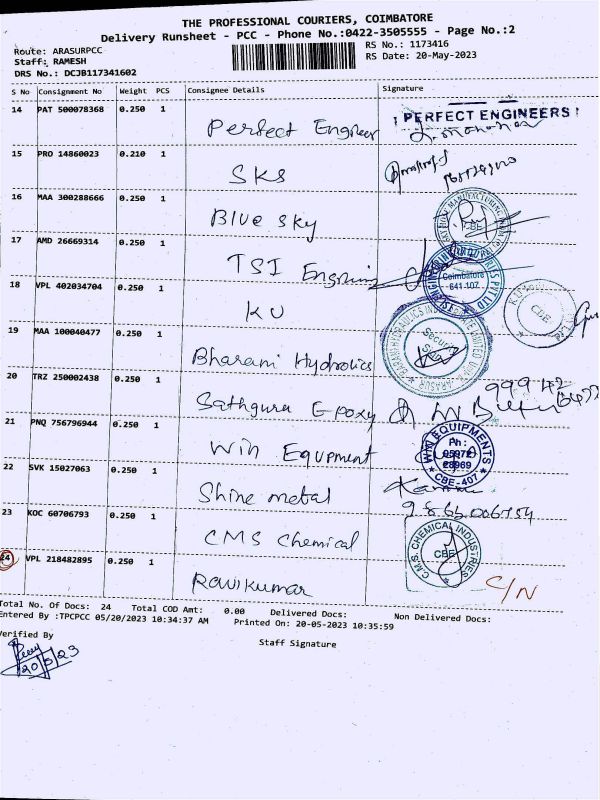 THE PROFESSIONAL COURIERS, COIMBATORE
Delivery Runsheet - PCC - Phone No.:0422-3505555 - Page No.:2
Route: ARASURPCC
RS No.: 1173416
Staff: RAMESH
RS Date: 20-May-2023
DRS No.: DCJB117341602
S No Consignment No Weight PCS Consignee Details Signature
14 PAT 500078368 0.250 1 Perfect Engineer
PERFECT ENGINEERS
15 PRO 14860023 0.210 1 SKS
16 MAA 300288666 0.250 1 Blue sky
CBE
17 AMD 26669314 0.250 1 TSI Engniring
Coimbatore
641 107
18 VPL 402034704 0.250 1 KU
CBE
19 MAA 100040477 0.250 1 Bharani Hydrolics
Security
20 TRZ 250002438 0.250 1 Sathguru Epoxy
99942
21 PNQ 756796944 0.250 1 Win Equpment
WIN EQUIPMENTS
Ph:
CBE-407
22 SVK 15027063 0.250 1 Shine metal
23 KOC 60706793 0.250 1 CMS Chemical
C.M.S. CHEMICAL INDUSTRIES
CBE
24 VPL 218482895 0.250 1 Ravikumar
C/N
Total No. Of Docs: 24 Total COD Amt: 0.00 Delivered Docs: Non Delivered Docs:
Entered By :TPCPCC 05/20/2023 10:34:37 AM Printed On: 20-05-2023 10:35:59
Verified By
Staff Signature
20/5/23